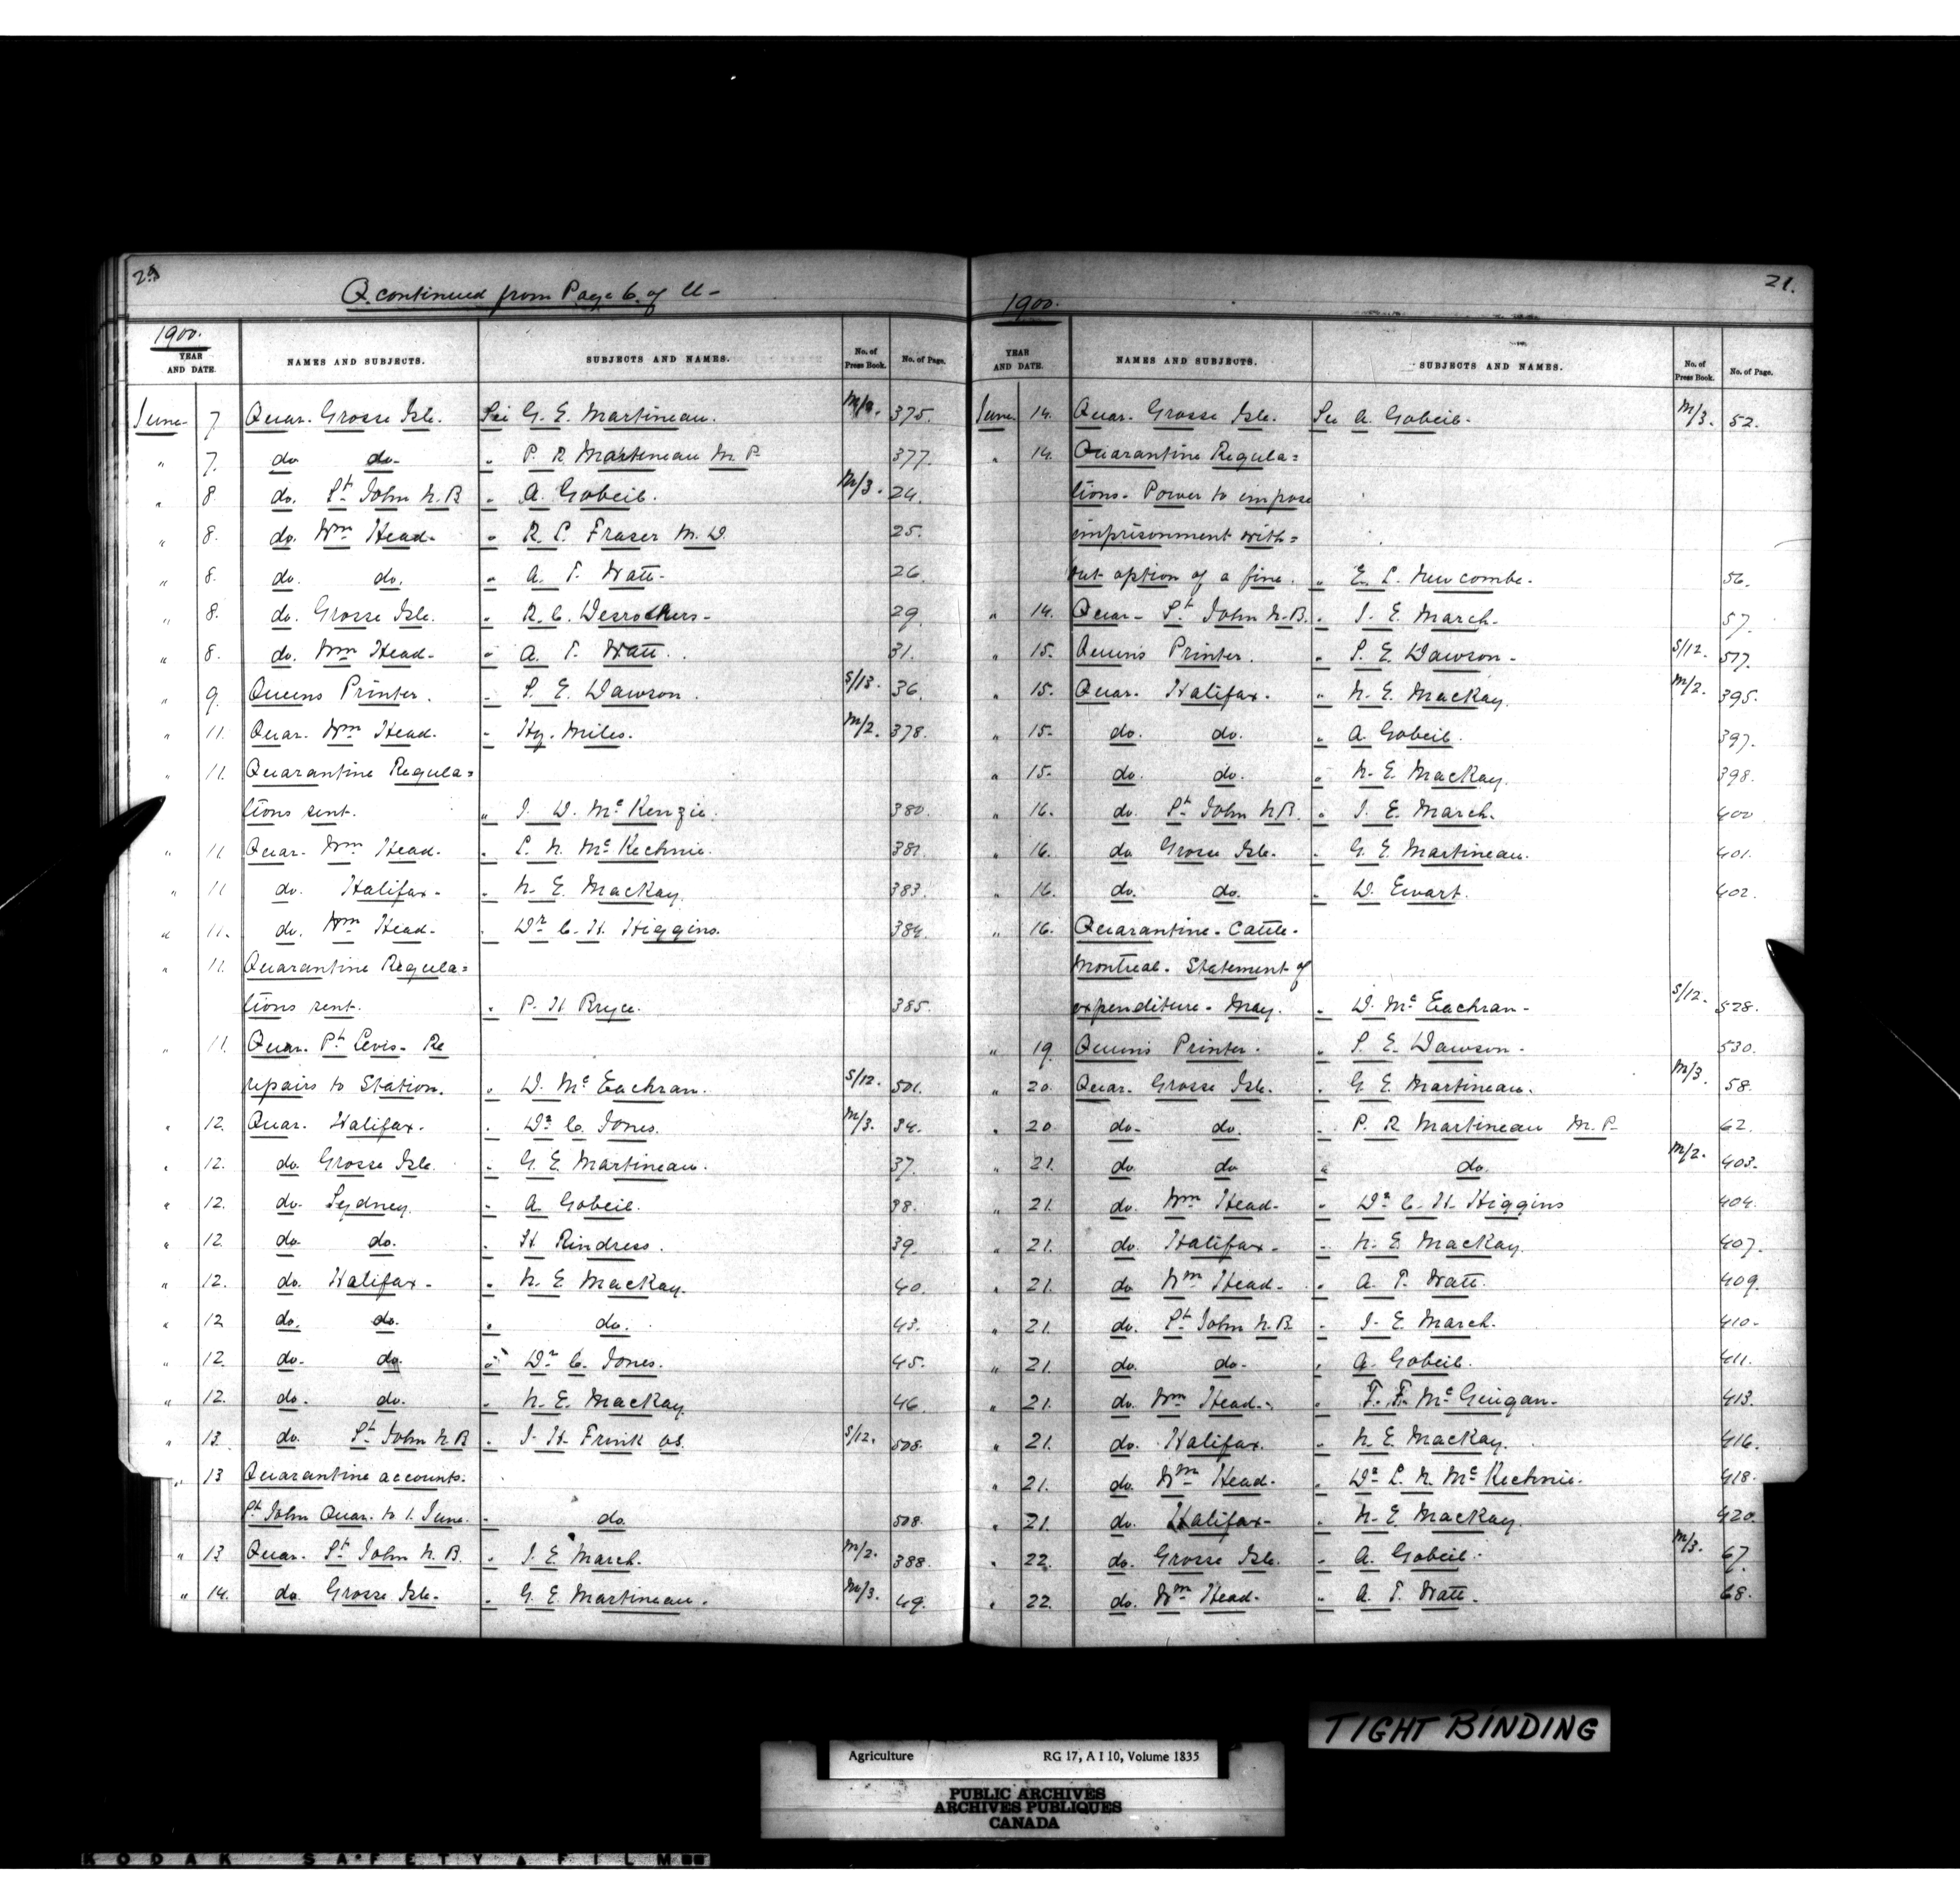 20
Q. continued from Page 6. of U-
1900.
YEAR AND DATE. NAMES AND SUBJECTS. SUBJECTS AND NAMES. No. of Press Book. No. of Page.
June 7 Quar. Grosse Isle. See G. E. Martineau. 375.
" 7. do do- " P. R. Martineau M. P. 377.
" 8. do. St John N.B " A. Gobeil. M/3. 24.
" 8. do. Wm Head- " R. L. Fraser M. D. 25.
" 8. do. do. " A. T. Watt- 26.
" 8. do. Grosse Isle. " R. C. Desrochers- 29.
" 8. do. Wm Head- " A. T. Watt. 31.
" 9. Queens Printer. " S. E. Dawson. S/13. 36.
" 11. Quar. Wm Head. " Hy. Miles. M/2. 378.
" 11. Quarantine Regula=
tions sent. " J. D. McKenzie. 380.
" 11 Quar. Wm Head. " L. N. McKechnie. 381.
" 11 do. Halifax- " N. E. MacKay. 383.
" 11. do. Wm Head- " Dr C. H. Higgins. 384.
" 11. Quarantine Regula=
tions sent. " P. H Bryce. 385.
" 11. Quar. Pt Levis- Re
repairs to Station. " D. McEachran. S/12. 501.
" 12. Quar. Halifax. " Dr C. Jones. M/3. 34.
" 12. do. Grosse Isle. " G. E. Martineau. 37.
" 12. do. Sydney. " A. Gobeil. 38.
" 12. do. do. " H Rindress. 39.
" 12. do. Halifax- " N. E MacKay. 40.
" 12 do. do. " do. 43.
" 12. do. do. " Dr C. Jones. 45.
" 12. do. do. " N. E. MacKay 46.
" 13. do. St John N.B " J. H. Frink as. S/12. 508.
" 13 Quarantine accounts.
St John Quar. to 1. June. " do. 508.
" 13 Quar. St John N. B. " J. E March. M/2. 388.
" 14. do. Grosse Isle. " G. E. Martineau. M/3. 49.
21.
1900.
YEAR AND DATE. NAMES AND SUBJECTS. SUBJECTS AND NAMES. No. of Press Book. No. of Page.
June 14. Quar. Grosse Isle. See A. Gobeil. M/3. 52.
" 14. Quarantine Regula=
tions. Power to impose
imprisonment with=
out option of a fine. " E. L. Newcombe. 56.
" 14. Quar- St John N.B. " J. E. March. 57.
" 15. Queens Printer. " S. E. Dawson- S/12. 517.
" 15. Quar. Halifax. " N. E. MacKay. M/2. 395.
" 15. do. do. " A. Gobeil. 397.
" 15- do. do. " N. E. MacKay. 398.
" 16. do. St John N.B. " J. E. March. 400
" 16. do Grosse Isle. " G. E. Martineau. 401.
" 16 do. do. " D. Ewart. 402.
" 16. Quarantine- Cattle-
Montreal. Statement of
expenditure- May. " D. McEachran- S/12. 528.
" 19 Queens Printer. " S. E. Dawson- 530.
" 20. Quar. Grosse Isle. " G. E. Martineau. M/3. 58.
" 20 do- do. " P. R Martineau M. P. 62.
" 21. do. do " do. M/2. 403.
" 21. do. Wm Head- " Dr C. H. Higgins 404.
" 21. do. Halifax- " N. E MacKay. 407.
" 21. do Wm Head- " A. T. Watt. 409.
" 21. do. St John N.B. " J. E. March. 410-
" 21. do. do- " A. Gobeil. 411.
" 21. do. Wm Head- " T. F. McGuigan. 413.
" 21. do. Halifax. " N. E. MacKay. 416.
" 21. do. Wm Head- " Dr L. N. McKechnie. 418.
" 21. do. Halifax- " N. E MacKay. 420.
" 22. do. Grosse Isle. " A. Gobeil. M/3. 67.
" 22. do. Wm Head- " A. T. Watt. 68.
TIGHT BINDING
Agriculture RG 17, A I 10, Volume 1835
PUBLIC ARCHIVES
ARCHIVES PUBLIQUES
CANADA
KODAK SAFETY FILM